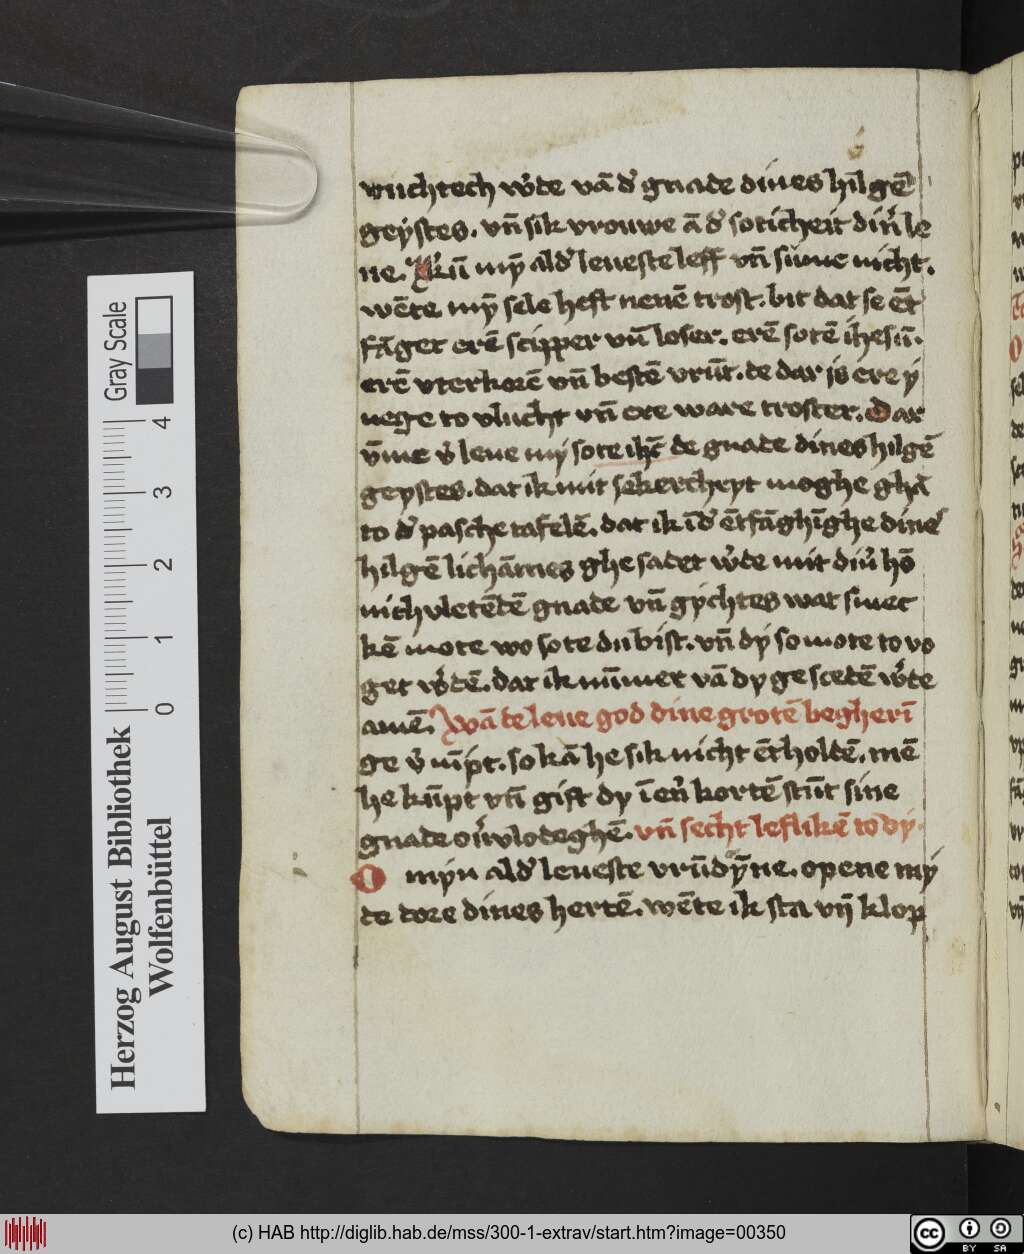 vruchtech w'de vā d' gnade dines hilgē
geystes. vn̄ sik vrouwe ā d' soticheit din' le
ue. Kū my̅ ald' leueste leff vn̄ sume nicht.
wēte my̅ sele heft nenē trost. bit dat se ēt
fāget erē scipper vn̄ loser. erē sotē ihesū.
erē vterkorē vn̄ bestē vrūt. de dar is ere y
nege to vlucht vn̄ ere ware troster. Dar
v̅me v' lene my sote ihc̄ de gnade dines hilgē
geystes. dat ik mit sekercheyt moghe ghā
to d' pasche tafelē. dat ik ī d' ētfāghīghe dines
hilgē lichāmes ghe sadet w'de mit diu' hō
nich vletēdē gnade vn̄ gychtes wat smec
kē mote wo sote du bist. vn̄ dy so mote to vo
get w'dē. dat ik nūmer vā dy ge scedē w'de
amē. Wā de leue god dine grotē begherī
ge v' nīpt. so kā he sik nicht ēt holdē. mē
he kūpt vn̄ gift dy ī en' kortē stūt sine
gnade ou' vlodeghē. vn̄ secht leflikē to dy.
O myn ald' leueste vrūdy̅ne. opene my
de dore dines hertē. wēte ik sta vn̄ klop
Gray Scale
0 1 2 3 4
Herzog August Bibliothek
Wolfenbüttel
(c) HAB http://diglib.hab.de/mss/300-1-extrav/start.htm?image=00350
cc BY SA